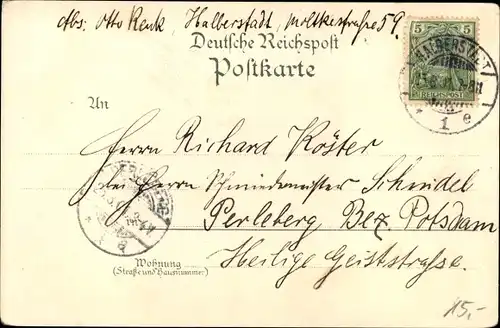 Abs: Otto Renk, Halberstadt, Moltkestraße 59.
Deutsche Reichspost
Postkarte
5 5
REICHSPOST
HALBERSTADT
1 e
An
Herrn Richard Köster
bei Herrn Schmiedemeister Scheidel
Perleberg Bez. Potsdam
Heilige Geiststrasse.
Wohnung
(Straße und Hausnummer)
15,-